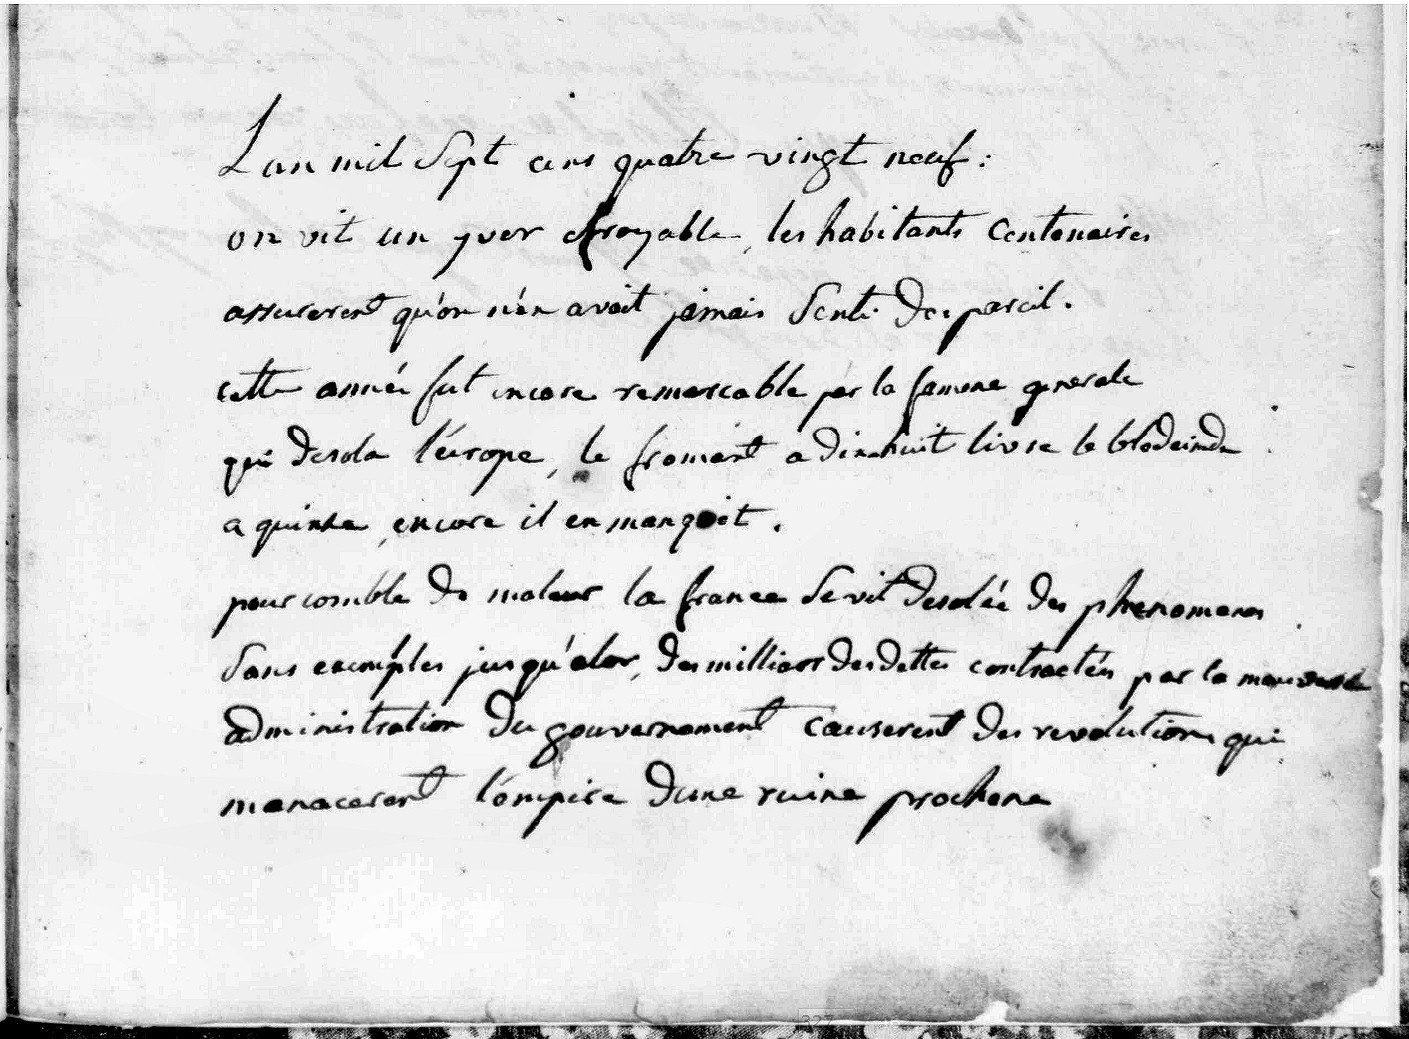 L'an mil sept cens quatre vingt neuf:
on vit un yver efroyable, les habitants Centenaires
assurerent qu'on n'en avoit jamais senti de pareil.
cette année fut encore remarcable par la famine generale
qui desola l'éurope, le froment a dixhuit livre le blé
a quinze, encore il en manqoit.
pour comble de maleur la france se vit desolée des phenomenes
sans exemples jusqu'alor, des milliars des dettes contractées par la mauvaise
administration du gouvernement causerent des revolutions qui
menacerent l'émpire d'une ruine prochene
327